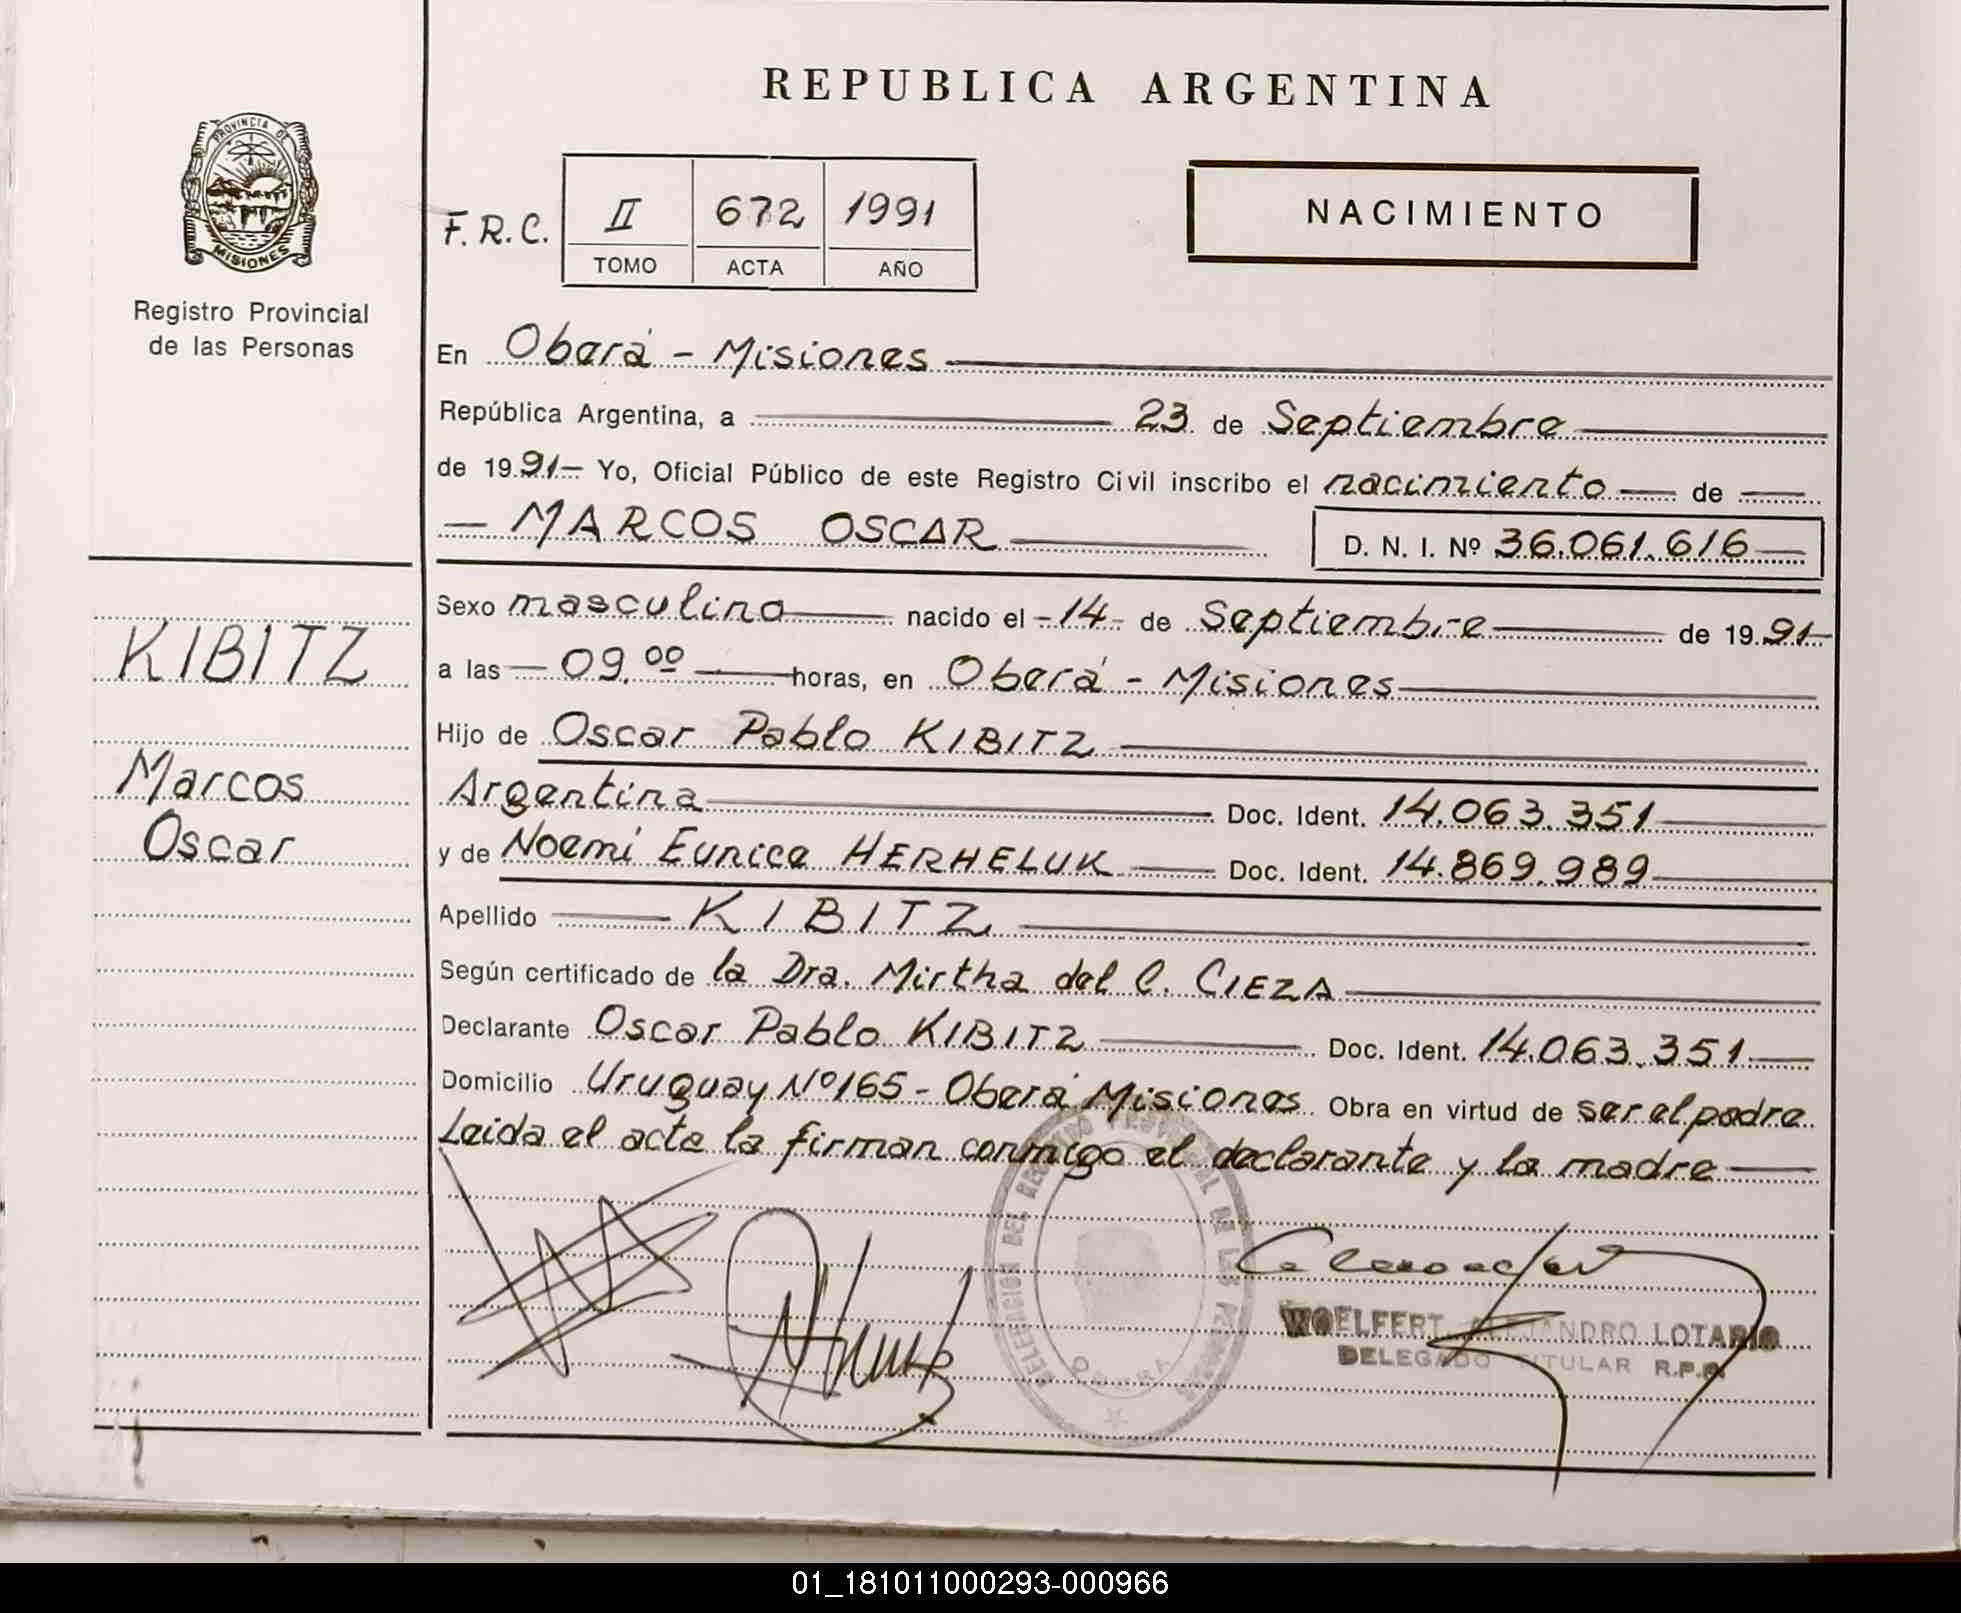 REPUBLICA ARGENTINA
PROVINCIA DE
MISIONES
Registro Provincial
de las Personas
F.R.C. II 672 1991
TOMO ACTA AÑO
NACIMIENTO
En Oberá - Misiones
República Argentina, a 23 de Septiembre
de 1991- Yo, Oficial Público de este Registro Civil inscribo el nacimiento de
MARCOS OSCAR D. N. I. Nº 36.061.616
KIBITZ
Marcos
Oscar
Sexo masculino nacido el -14- de Septiembre de 1991-
a las 09.00 horas, en Oberá - Misiones
Hijo de Oscar Pablo KIBITZ
Argentina Doc. Ident. 14.063.351
y de Noemi Eunice HERHELUK Doc. Ident. 14.869.989
Apellido KIBITZ
Según certificado de la Dra. Mirtha del C. CIEZA
Declarante Oscar Pablo KIBITZ Doc. Ident. 14.063.351
Domicilio Uruguay Nº165 - Oberá Misiones Obra en virtud de ser el padre
Leida el acta la firman conmigo el declarante y la madre
DELEGACION DEL REGISTRO PROVINCIAL DE LAS PERSONAS
OBERA
WOELFERT ALEJANDRO LOTARIO
DELEGADO TITULAR R.P.P.
01_181011000293-000966